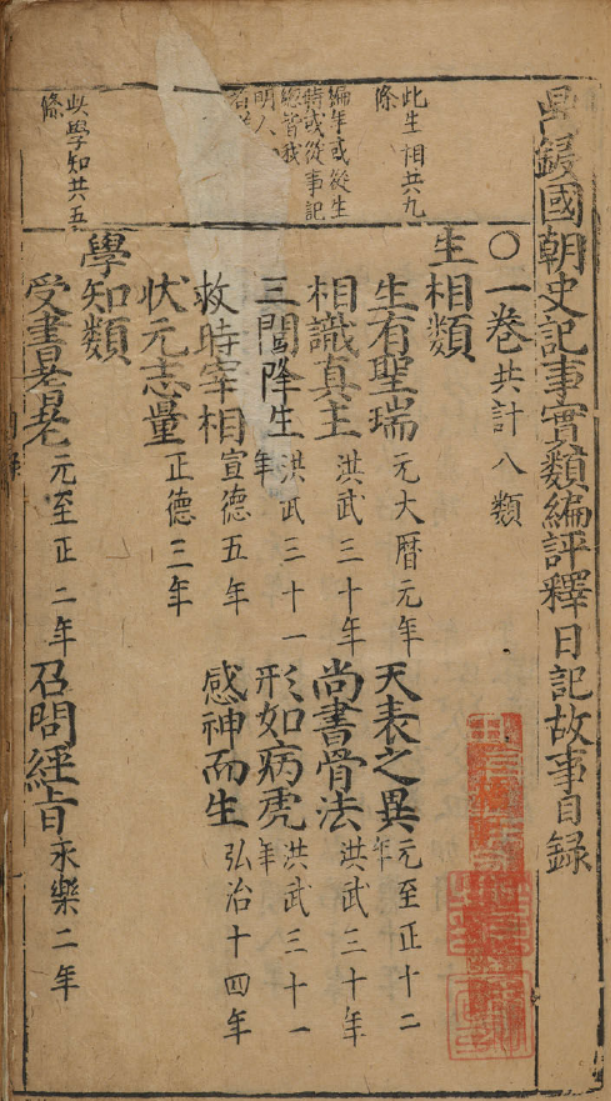 鼎鋟國朝史記事實類編評釋日記故事目錄
〇一卷共計八類
此生相共九
條
生相類
編年或從生
時或從事記
總皆我
明人
生有聖瑞 元大曆元年 天表之異 元至正十二年
相識真主 洪武三十年 尚書骨法 洪武三十年
三閭降生 洪武三十一年 形如病虎 洪武三十一年
救時宰相 宣德五年 感神而生 弘治十四年
状元志量 正德三年
此學知共五
條
學知類
受書耆老 元至正二年 召問經旨 永樂二年